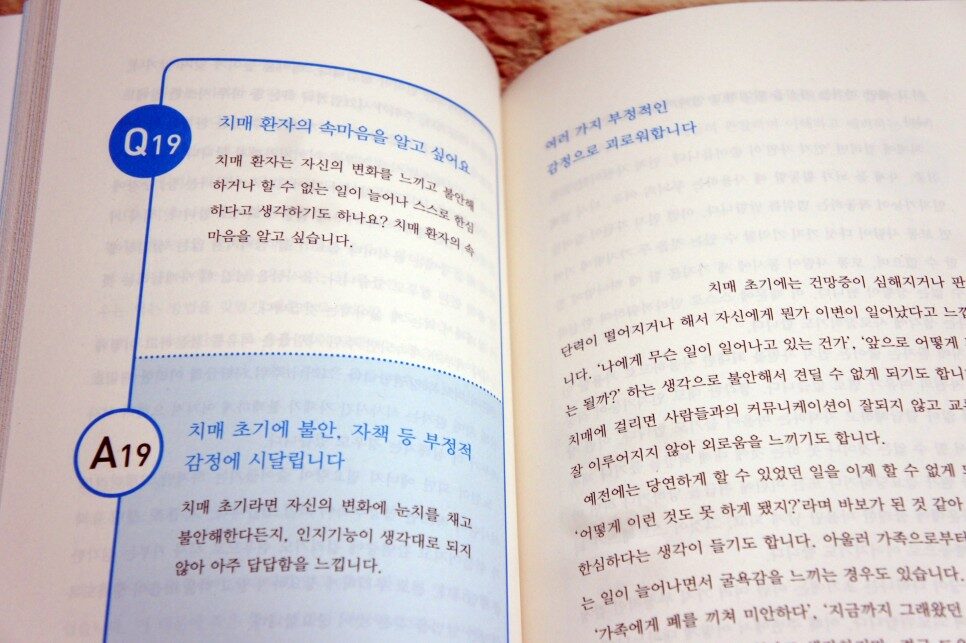 Q19
치매 환자의 속마음을 알고 싶어요
치매 환자는 자신의 변화를 느끼고 불안해
하거나 할 수 없는 일이 늘어나 스스로 한심
하다고 생각하기도 하나요? 치매 환자의 속
마음을 알고 싶습니다.
A19
치매 초기에 불안, 자책 등 부정적
감정에 시달립니다
치매 초기라면 자신의 변화에 눈치를 채고
불안해한다든지, 인지기능이 생각대로 되지
않아 아주 답답함을 느낍니다.
여러 가지 부정적인
감정으로 괴로워합니다
치매 초기에는 건망증이 심해지거나 판
단력이 떨어지거나 해서 자신에게 뭔가 이변이 일어났다고 느낍
니다. ‘나에게 무슨 일이 일어나고 있는 건가’, ‘앞으로 어떻게
는 될까?’ 하는 생각으로 불안해서 견딜 수 없게 되기도 합니
치매에 걸리면 사람들과의 커뮤니케이션이 잘되지 않고 교
잘 이루어지지 않아 외로움을 느끼기도 합니다.
예전에는 당연하게 할 수 있었던 일을 이제 할 수 없게 되
‘어떻게 이런 것도 못 하게 됐지?’라며 바보가 된 것 같아
한심하다는 생각이 들기도 합니다. 아울러 가족으로부터
는 일이 늘어나면서 굴욕감을 느끼는 경우도 있습니다.
‘가족에게 폐를 끼쳐 미안하다’, ‘지금까지 그래왔던